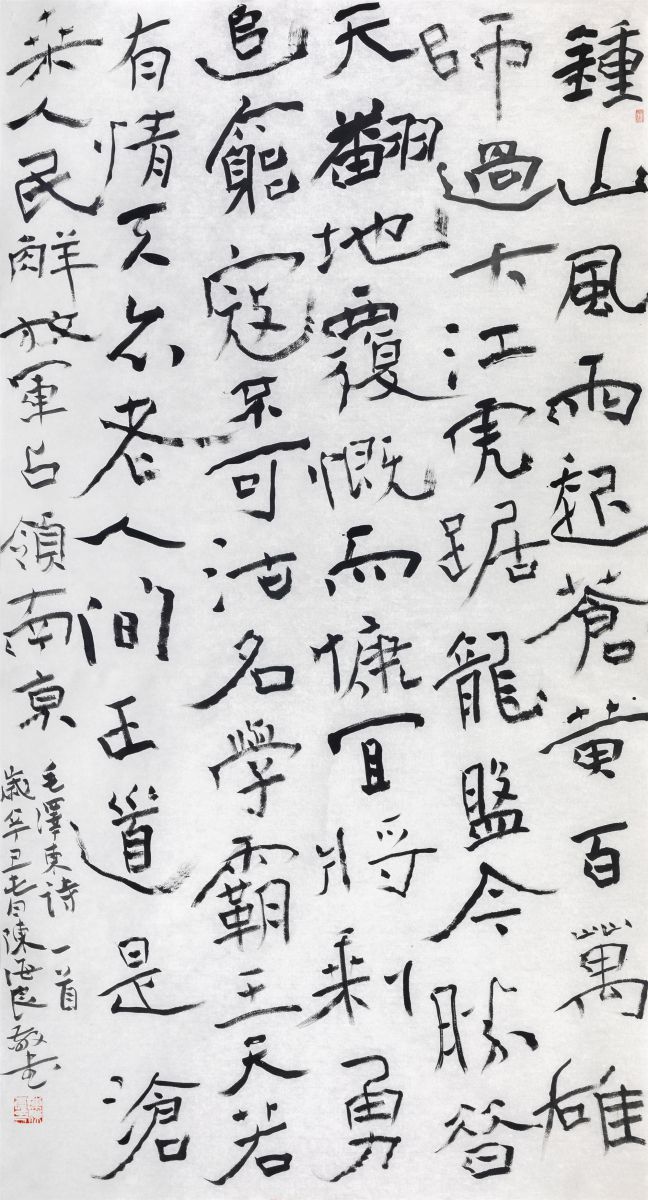 鍾山風雨起蒼黄百萬雄
師過大江虎踞龍盤今勝昔
天翻地覆慨而慷宜將剩勇
追窮寇不可沽名學霸王天若
有情天亦老人間正道是滄
桑人民解放軍占領南京
毛澤東詩一首
歲辛丑春日陳海良敬書